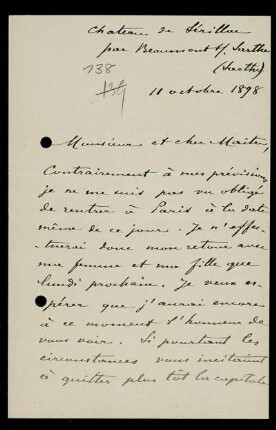 Chateau de Sérillac
par Beaumont s/ Sarthe
(Sarthe)
138
139
11 octobre 1898
Monsieur et cher Maître,
Contrairement à mes prévisions
je ne me suis pas vu obligé
de rentrer à Paris à la date
même de ce jour. Je n'effec-
tuerai donc mon retour avec
ma femme et ma fille que
lundi prochain. Je veux es-
pérer que j'aurai encore
à ce moment l'honneur de
vous voir. Si pourtant les
circonstances vous incitaient
à quitter plus tôt la capitale